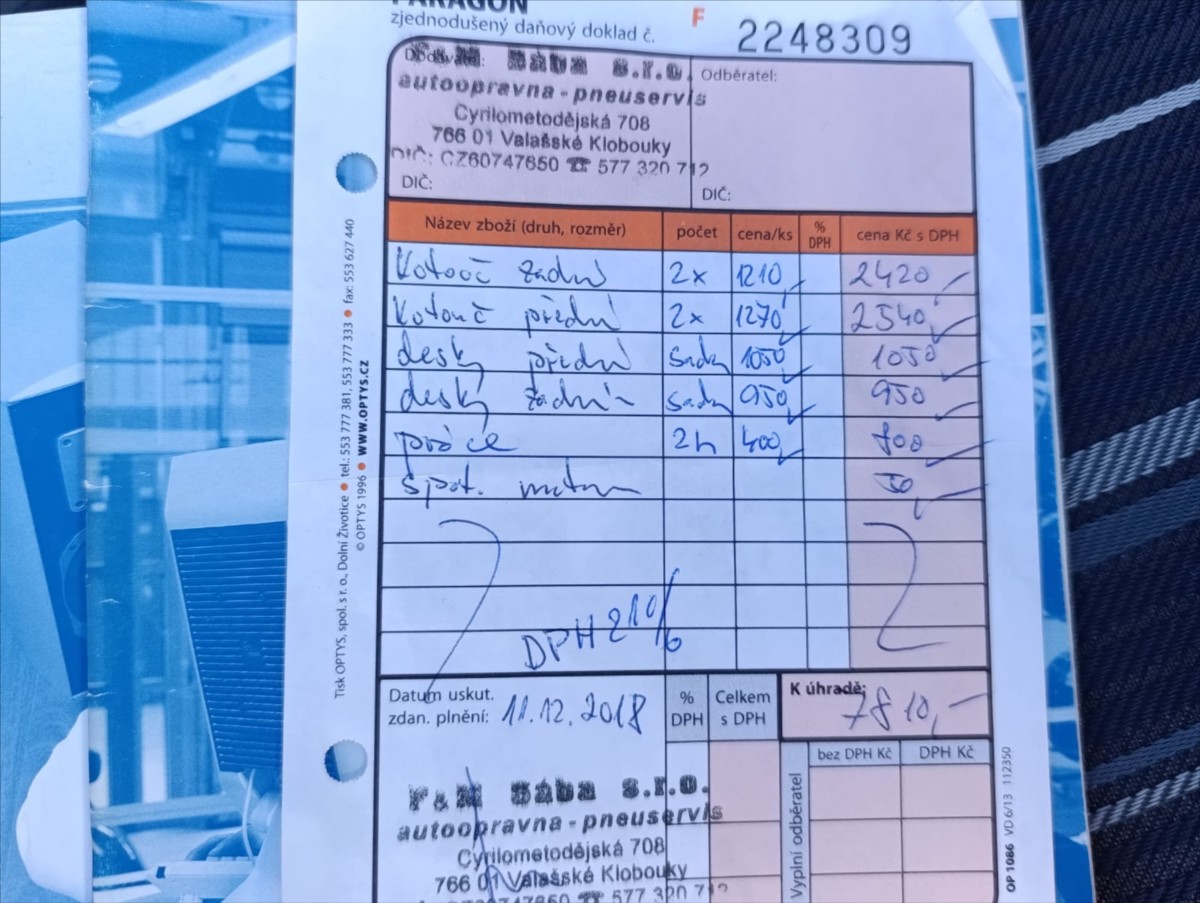 PARAGON
zjednodušený daňový doklad č. F 2248309
Dodavatel: Sába s.r.o. Odběratel:
autoopravna - pneuservis
Cyrilometodějská 708
766 01 Valašské Klobouky
DIČ: CZ60747650 ☎ 577 320 712
DIČ: DIČ:
Název zboží (druh, rozměr) počet cena/ks % DPH cena Kč s DPH
Kotouč zadní 2x 1210,- 2420,-
Kotouč přední 2x 1270,- 2540,-
desky přední sada 1050,- 1050,-
desky zadní sada 950,- 950,-
práce 2h 400,- 800,-
spot. 50,-
DPH 21%
Datum uskut. zdan. plnění: 11.12.2018
% DPH Celkem s DPH
K úhradě: 7810,-
bez DPH Kč DPH Kč
Vyplní odběratel
Sába s.r.o.
autoopravna - pneuservis
Cyrilometodějská 708
766 01 Valašské Klobouky
577 320 712
Tisk OPTYS, spol. s r. o., Dolní Životice ● tel.: 553 777 381, 553 777 333 ● fax: 553 627 440
© OPTYS 1996 ● WWW.OPTYS.CZ
OP 1086 VD 6/13 112350